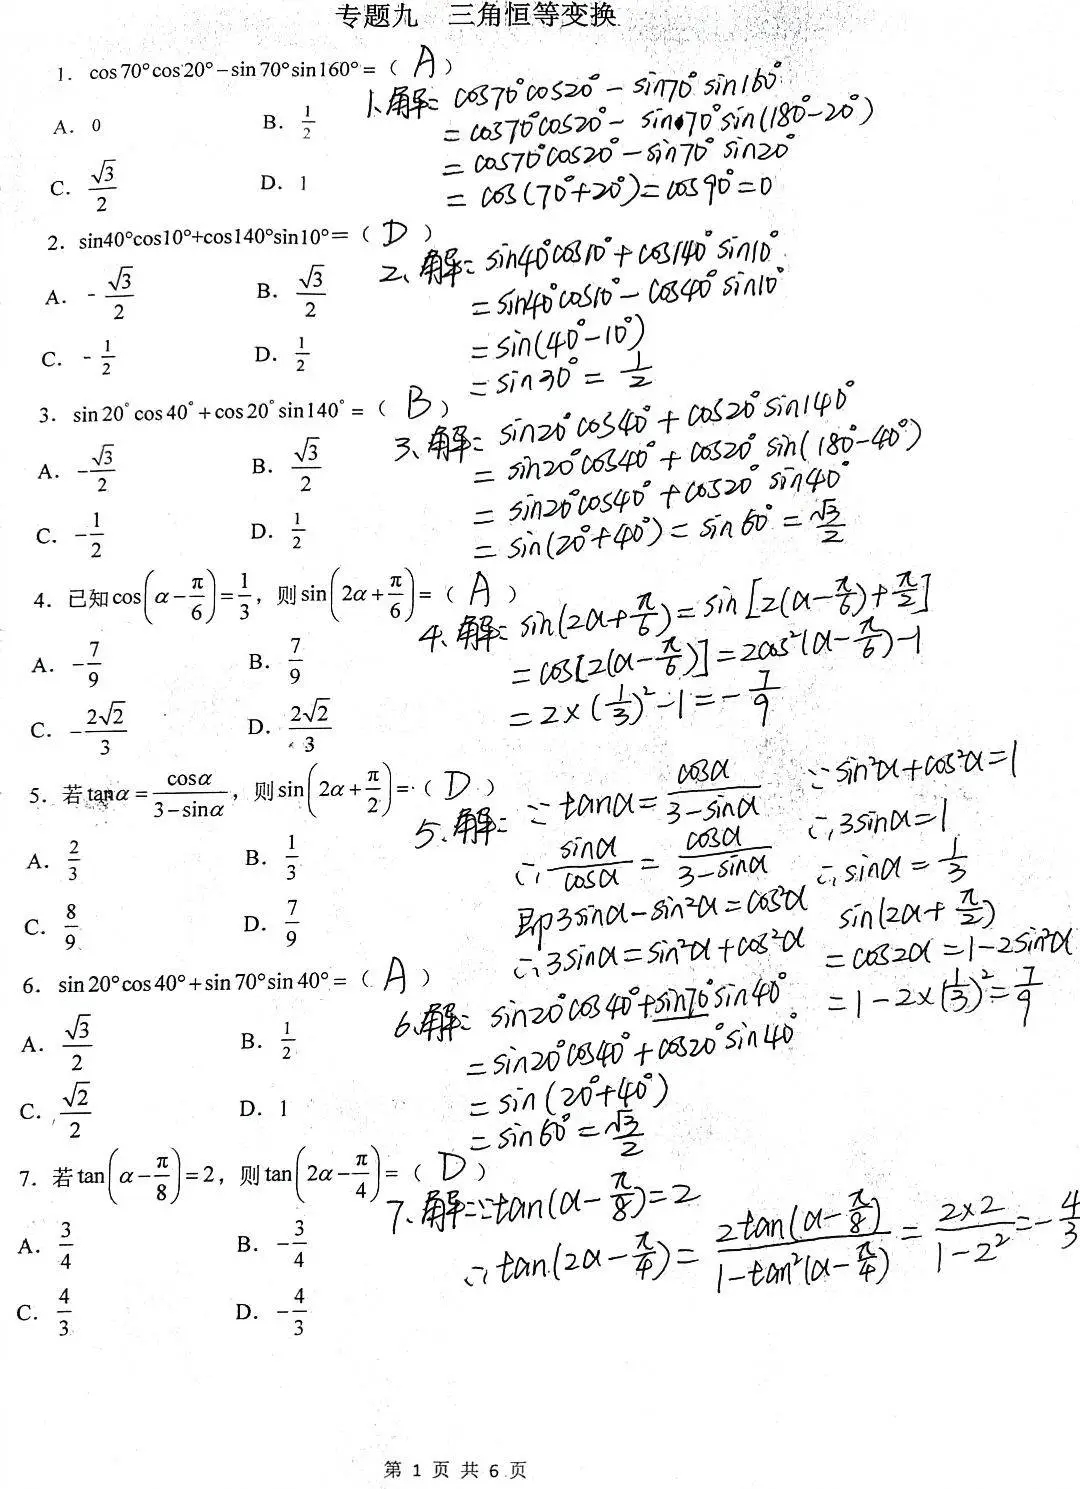 专题九 三角恒等变换
1. cos70°cos20°－sin70°sin160°=（ A ）
A. 0 B. 1/2
C. √3/2 D. 1
1、解: cos70°cos20°－sin70°sin160°
= cos70°cos20°－sin70°sin(180°－20°)
= cos70°cos20°－sin70°sin20°
= cos(70°+20°)=cos90°=0
2. sin40°cos10°+cos140°sin10°=（ D ）
A. -√3/2 B. √3/2
C. -1/2 D. 1/2
2、解: sin40°cos10°+cos140°sin10°
=sin40°cos10°－cos40°sin10°
=sin(40°－10°)
=sin30°=1/2
3. sin20°cos40°+cos20°sin140°=（ B ）
A. -√3/2 B. √3/2
C. -1/2 D. 1/2
3、解: sin20°cos40°+cos20°sin140°
= sin20°cos40°+cos20°sin(180°－40°)
= sin20°cos40°+cos20°sin40°
= sin(20°+40°)=sin60°=√3/2
4. 已知cos(α－π/6)=1/3，则sin(2α+π/6)=（ A ）
A. -7/9 B. 7/9
C. -2√2/3 D. 2√2/3
4、解: sin(2α+π/6)=sin[2(α－π/6)+π/2]
=cos[2(α－π/6)]=2cos²(α－π/6)－1
=2×(1/3)²－1=－7/9
5. 若tanα=cosα/(3－sinα)，则sin(2α+π/2)=（ D ）
A. 2/3 B. 1/3
C. 8/9 D. 7/9
5、解: ∵tanα=cosα/(3－sinα)
∴sinα/cosα=cosα/(3－sinα)
即3sinα－sin²α=cos²α
∴3sinα=sin²α+cos²α
∵sin²α+cos²α=1
∴3sinα=1
∴sinα=1/3
sin(2α+π/2)
=cos2α=1－2sin²α
=1－2×(1/3)²=7/9
6. sin20°cos40°+sin70°sin40°=（ A ）
A. √3/2 B. 1/2
C. √2/2 D. 1
6、解: sin20°cos40°+sin70°sin40°
=sin20°cos40°+cos20°sin40°
=sin(20°+40°)
=sin60°=√3/2
7. 若tan(α－π/8)=2，则tan(2α－π/4)=（ D ）
A. 3/4 B. -3/4
C. 4/3 D. -4/3
7、解: ∵tan(α－π/8)=2
∴tan(2α－π/4)=2tan(α－π/8)/(1－tan²(α－π/4))=2×2/(1－2²)=－4/3
第 1 页 共 6 页